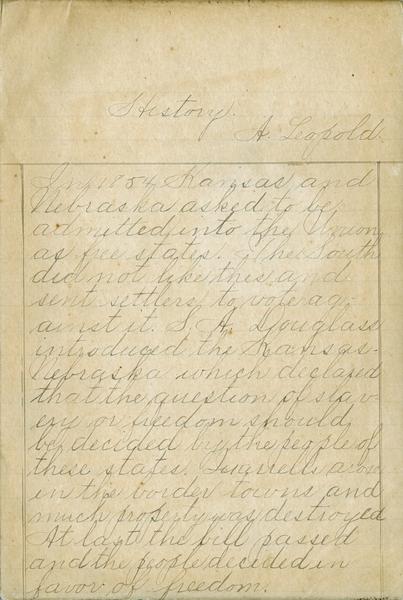 History.
A. Leopold.
In 1854 Kansas and
Nebraska asked to be
admitted into the Union
as free states. The South
did not like this and
sent settlers to vote ag-
ainst it. S. A. Douglass
introduced the Kansas-
Nebraska which declared
that the question of slav-
ery or freedom should
be decided by the people of
these states. Quarrels arose
in the border towns and
much property was destroyed
At last the bill passed
and the people decided in
favor of freedom.